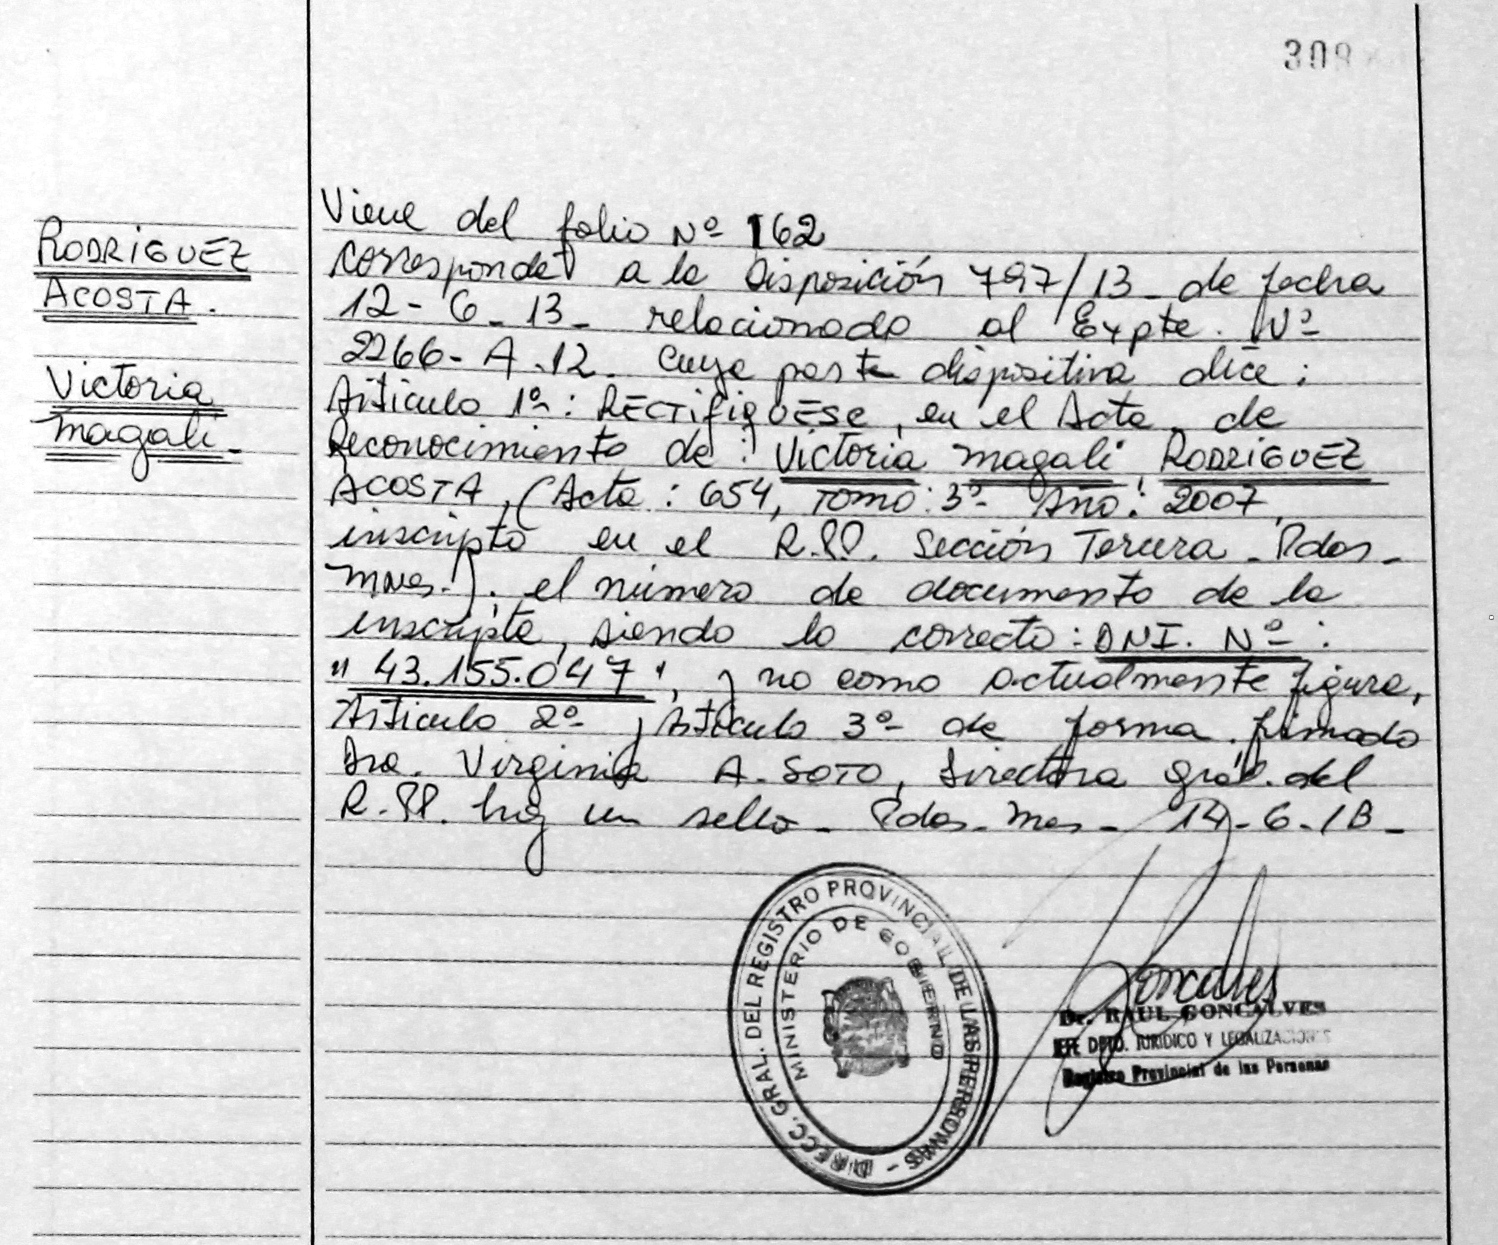 308
RODRIGUEZ
ACOSTA.
Victoria
Magali
Viene del folio Nº 162
corresponde a la Disposición 797/13 de fecha
12-6-13- relacionado al Expte. Nº
2266-A-12. Cuya parte dispositiva dice:
Artículo 1º: RECTIFIQUESE, en el Acta de
Reconocimiento de: Victoria Magali RODRIGUEZ
ACOSTA, (Acta: 654, Tomo: 3º Año: 2007,
inscripto en el R.PP. Sección Tercera - Pdas-
Mnes.). el número de documento de la
inscripta, siendo lo correcto: DNI. Nº:
"43.155.047", y no como actualmente figura,
Artículo 2º y Artículo 3º de forma. firmado
Dra. Virginia A. SOTO, Directora Gral. del
R.PP. hay un sello - Pdas. Mnes - 14-6-13-
DIRECC. GRAL. DEL REGISTRO PROVINCIAL DE LAS PERSONAS -
MINISTERIO DE GOBIERNO
Goncalves
Dr. RAUL GONCALVES
JEFE DPTO. JURIDICO Y LEGALIZACIONES
Registro Provincial de las Personas